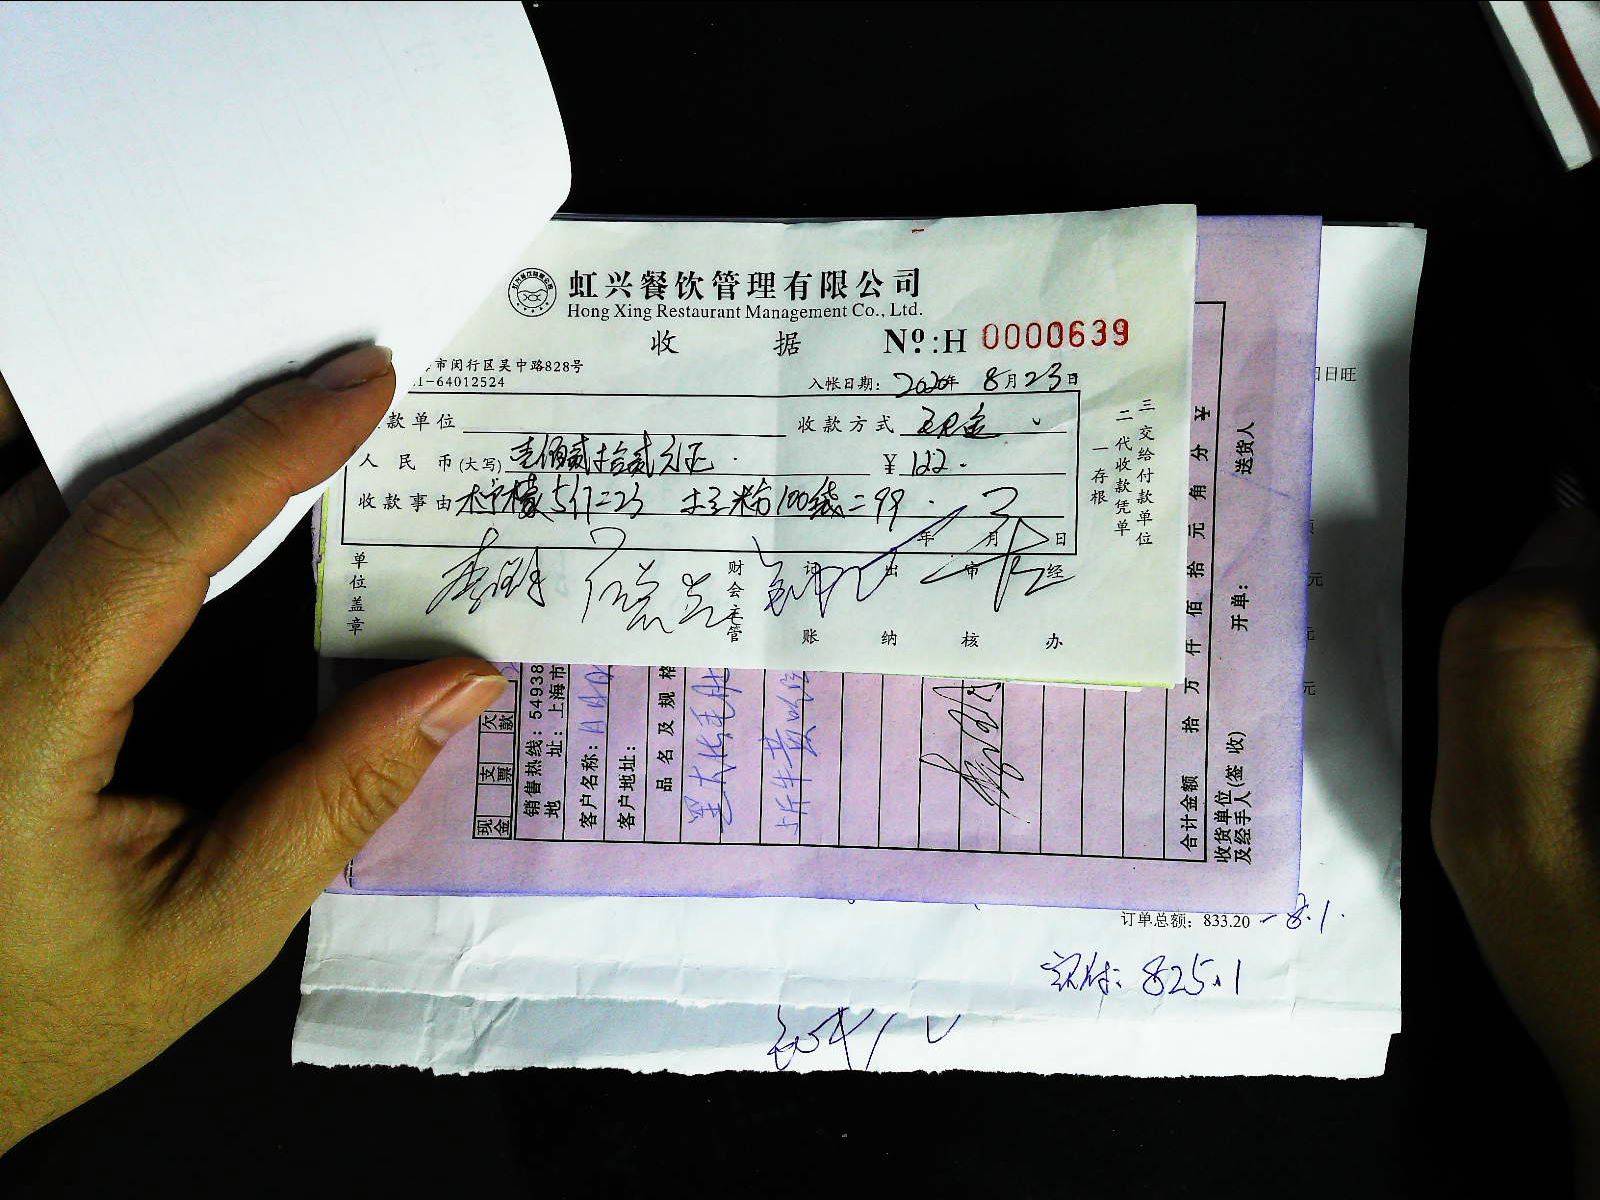 虹兴餐饮管理有限公司
Hong Xing Restaurant Management Co., Ltd.
收 据 Nº:H 0000639
市闵行区吴中路828号
1-64012524
入帐日期: 2020年 8月23日
款单位 收款方式 现金
人民币(大写) 壹佰贰拾贰元正 ¥ 122.
收款事由 柠檬5斤=23 土豆粉100袋=99.
年 月 日
单位盖章 财会主管 记账 出纳 审核 经办
一存根
二代收款凭单
三交给付款单位
现金 支票 欠款
销售热线: 54938
地 址: 上海市
客户名称:
客户地址:
品名及规格
合计金额 拾 万 仟 佰 拾 元 角 分 ¥
收货单位
及经手人(签收)
开单:
送货人
日旺
元
元
元
订单总额: 833.20 -8.1
实付: 825.1